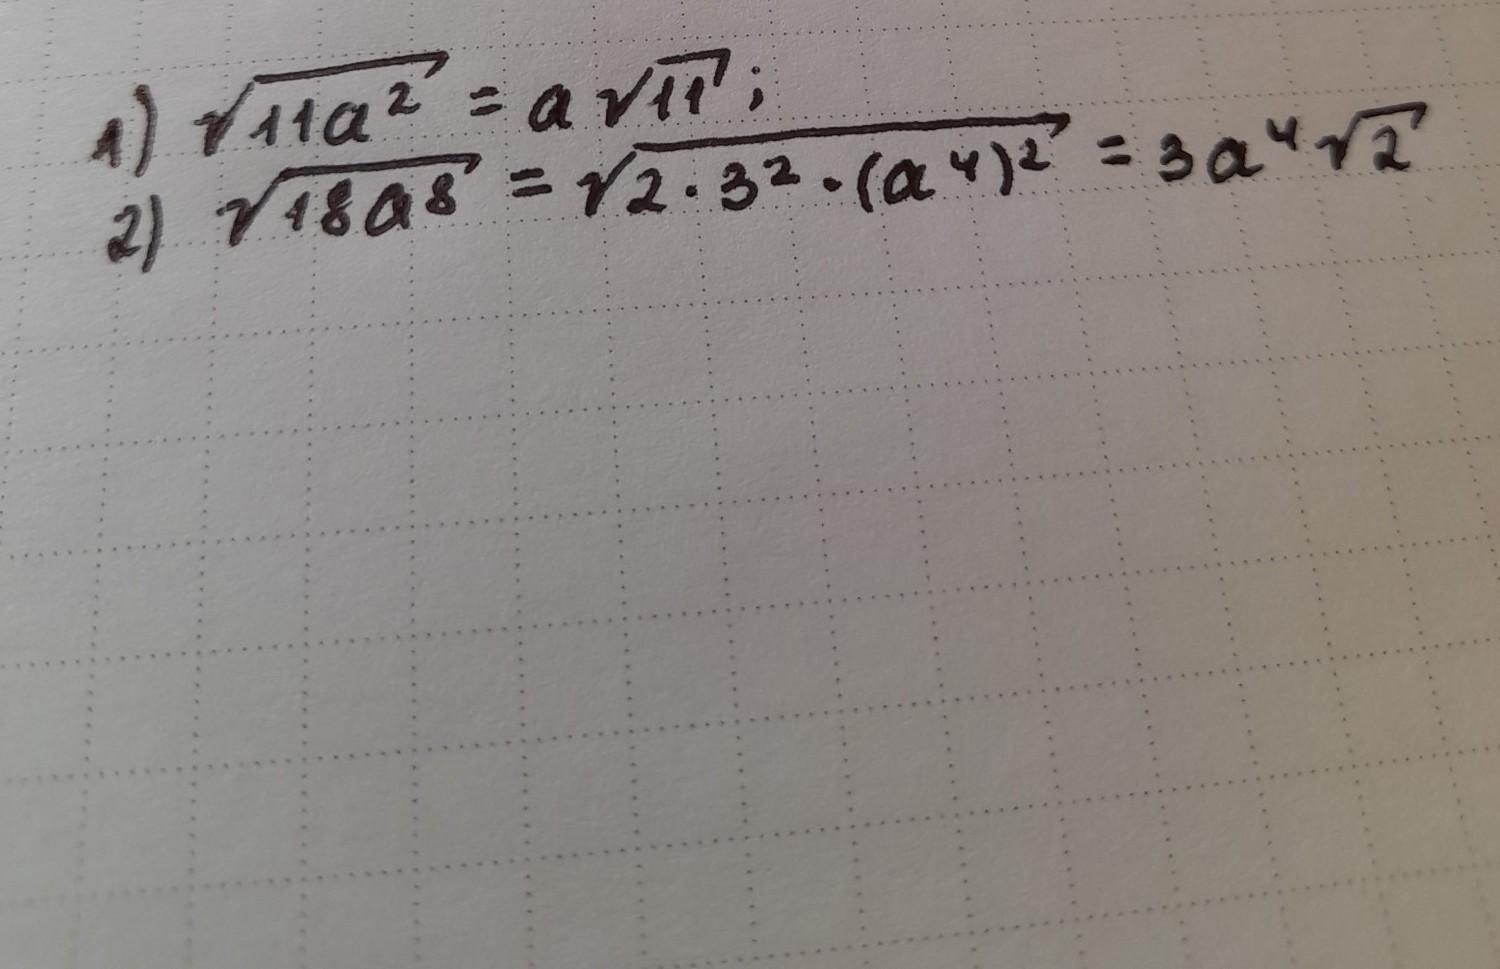 1) √11a² = a√11;
2) √18a⁸ = √2·3²·(a⁴)² = 3a⁴√2